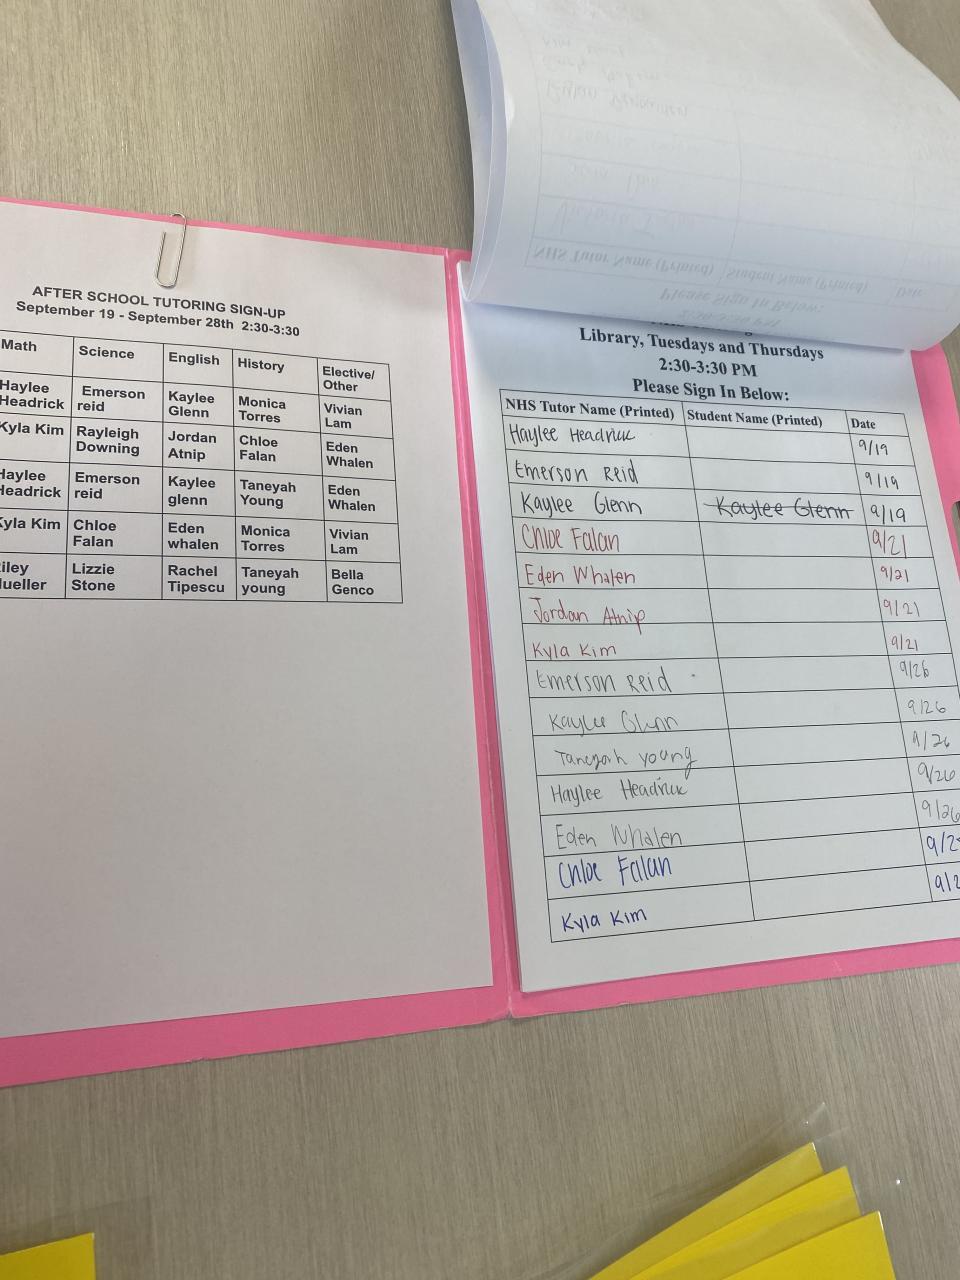 AFTER SCHOOL TUTORING SIGN-UP
September 19 - September 28th 2:30-3:30
Math Science English History Elective/
Other
Haylee
Headrick
Emerson
reid
Kaylee
Glenn
Monica
Torres
Vivian
Lam
Kyla Kim
Rayleigh
Downing
Jordan
Atnip
Chloe
Falan
Eden
Whalen
Haylee
Headrick
Emerson
reid
Kaylee
glenn
Taneyah
Young
Eden
Whalen
Kyla Kim
Chloe
Falan
Eden
whalen
Monica
Torres
Vivian
Lam
Lizzie
Stone
Rachel
Tipescu
Taneyah
young
Bella
Genco
NHS Tutor Name (Printed) Student Name (Printed) Date
Please Sign In Below:
2:30-3:30 PM
Library, Tuesdays and Thursdays
2:30-3:30 PM
Please Sign In Below:
NHS Tutor Name (Printed) Student Name (Printed) Date
Haylee Headrick 9/19
Emerson Reid 9/19
Kaylee Glenn Kaylee Glenn 9/19
Chloe Falan 9/21
Eden Whalen 9/21
Jordan Atnip 9/21
Kyla Kim 9/21
Emerson Reid 9/26
Kaylee Glenn 9/26
Taneyah young 9/26
Haylee Headrick 9/26
Eden Whalen 9/26
Chloe Falan 9/2
Kyla Kim 9/2